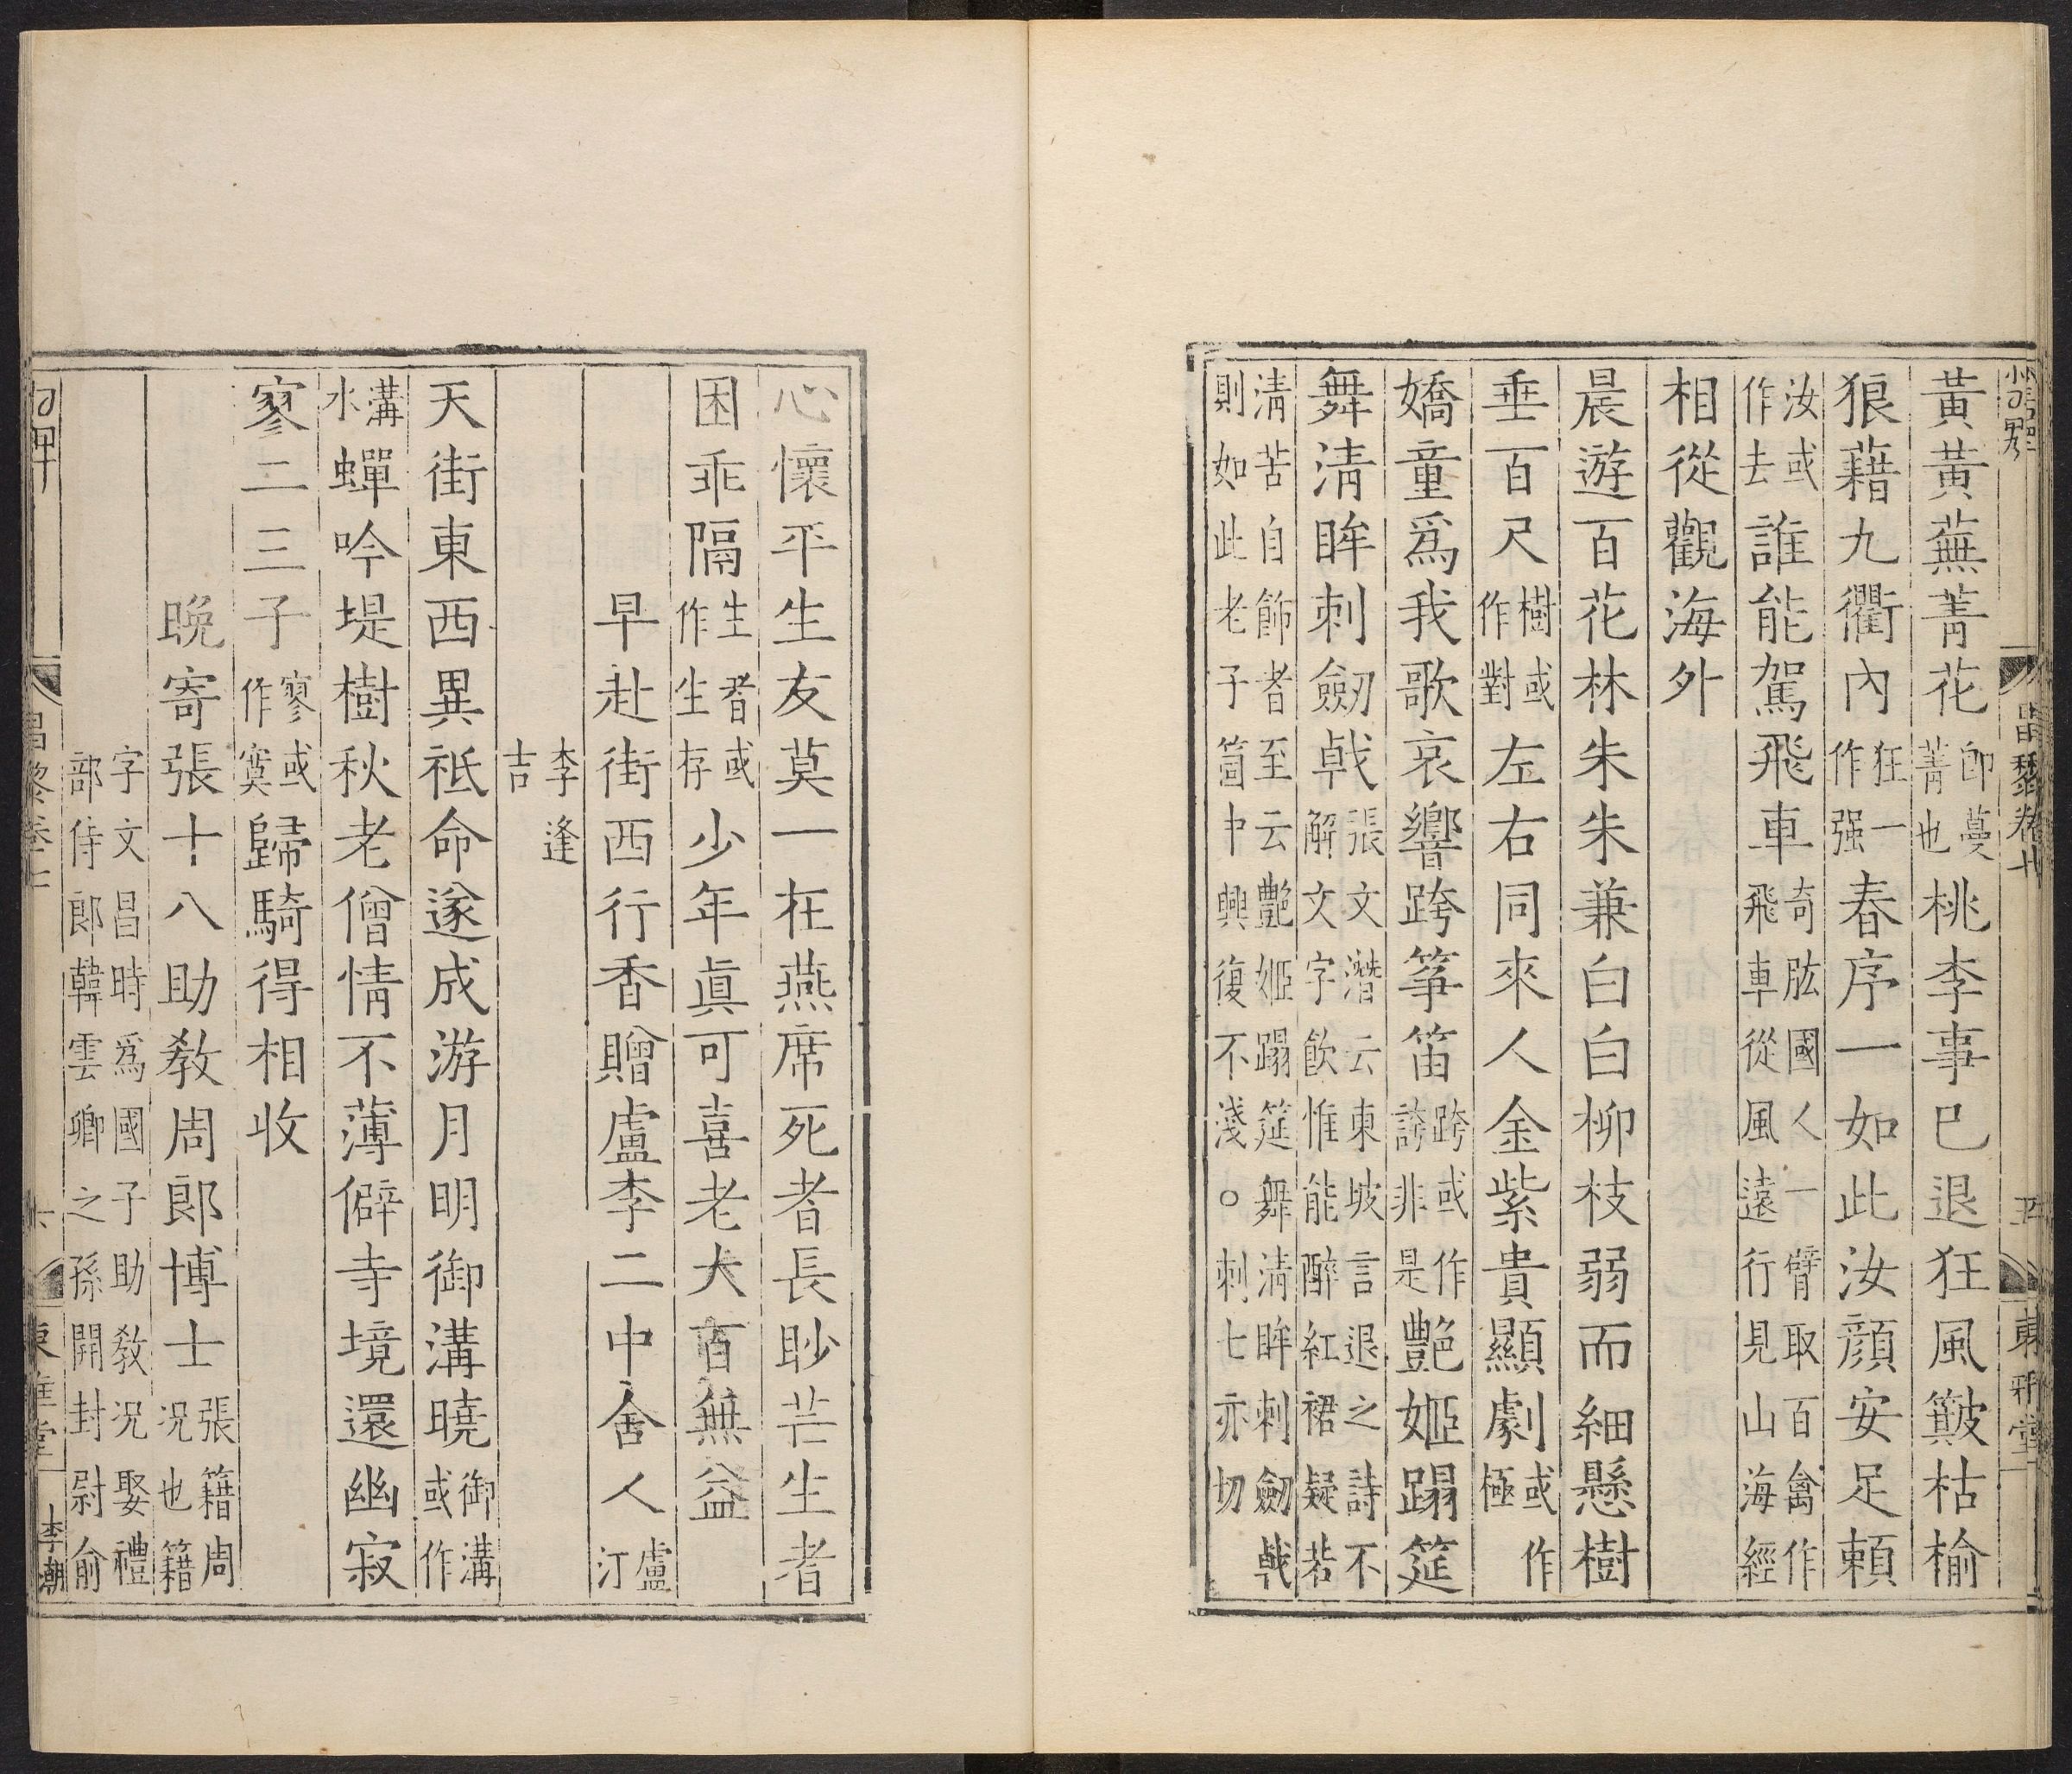 黃黃蕪菁花即蔓菁也桃李事已退狂風簸枯榆
狼藉九衢內狂一作强春序一如此汝顔安足賴
汝或作去誰能駕飛車奇肱國人一臂取百禽作飛車從風遠行見山海經
相從觀海外
晨遊百花林朱朱兼白白柳枝弱而細懸樹
垂百尺樹或作對左右同來人金紫貴顯劇或作極
嬌童爲我歌哀響跨箏笛跨或作誇非是艷姬蹋筵
舞淸眸刺劒戟張文潛云東坡言退之詩不解文字飲惟能醉紅裙疑若
淸苦自飾者至云艷姬蹋筵舞淸眸刺劒戟則如此老子箇中興復不淺○刺七亦切
昌黎卷十
五
東雅堂
心懷平生友莫一在燕席死者長眇芒生者
困乖隔生者或作生存少年眞可喜老大百無益
早赴街西行香贈盧李二中舍人盧汀
李逢吉
天街東西異祗命遂成游月明御溝曉御溝或作
溝水蟬吟堤樹秋老僧情不薄僻寺境還幽寂
寥二三子寥或作寞歸騎得相收
晚寄張十八助教周郎博士張籍周况也籍
字文昌時爲國子助教况娶禮部侍郎韓雲卿之孫開封尉俞
昌黎卷十
六
東雅堂
李潮